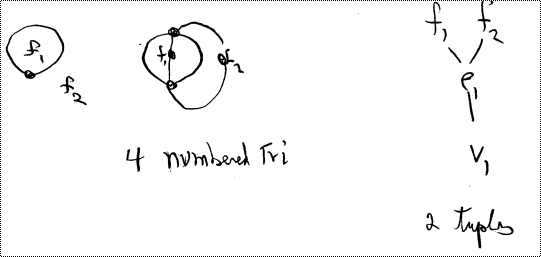 f1
f2
f1
f2
4 numbered Tri
f1 f2
e1
v1
2 tuples